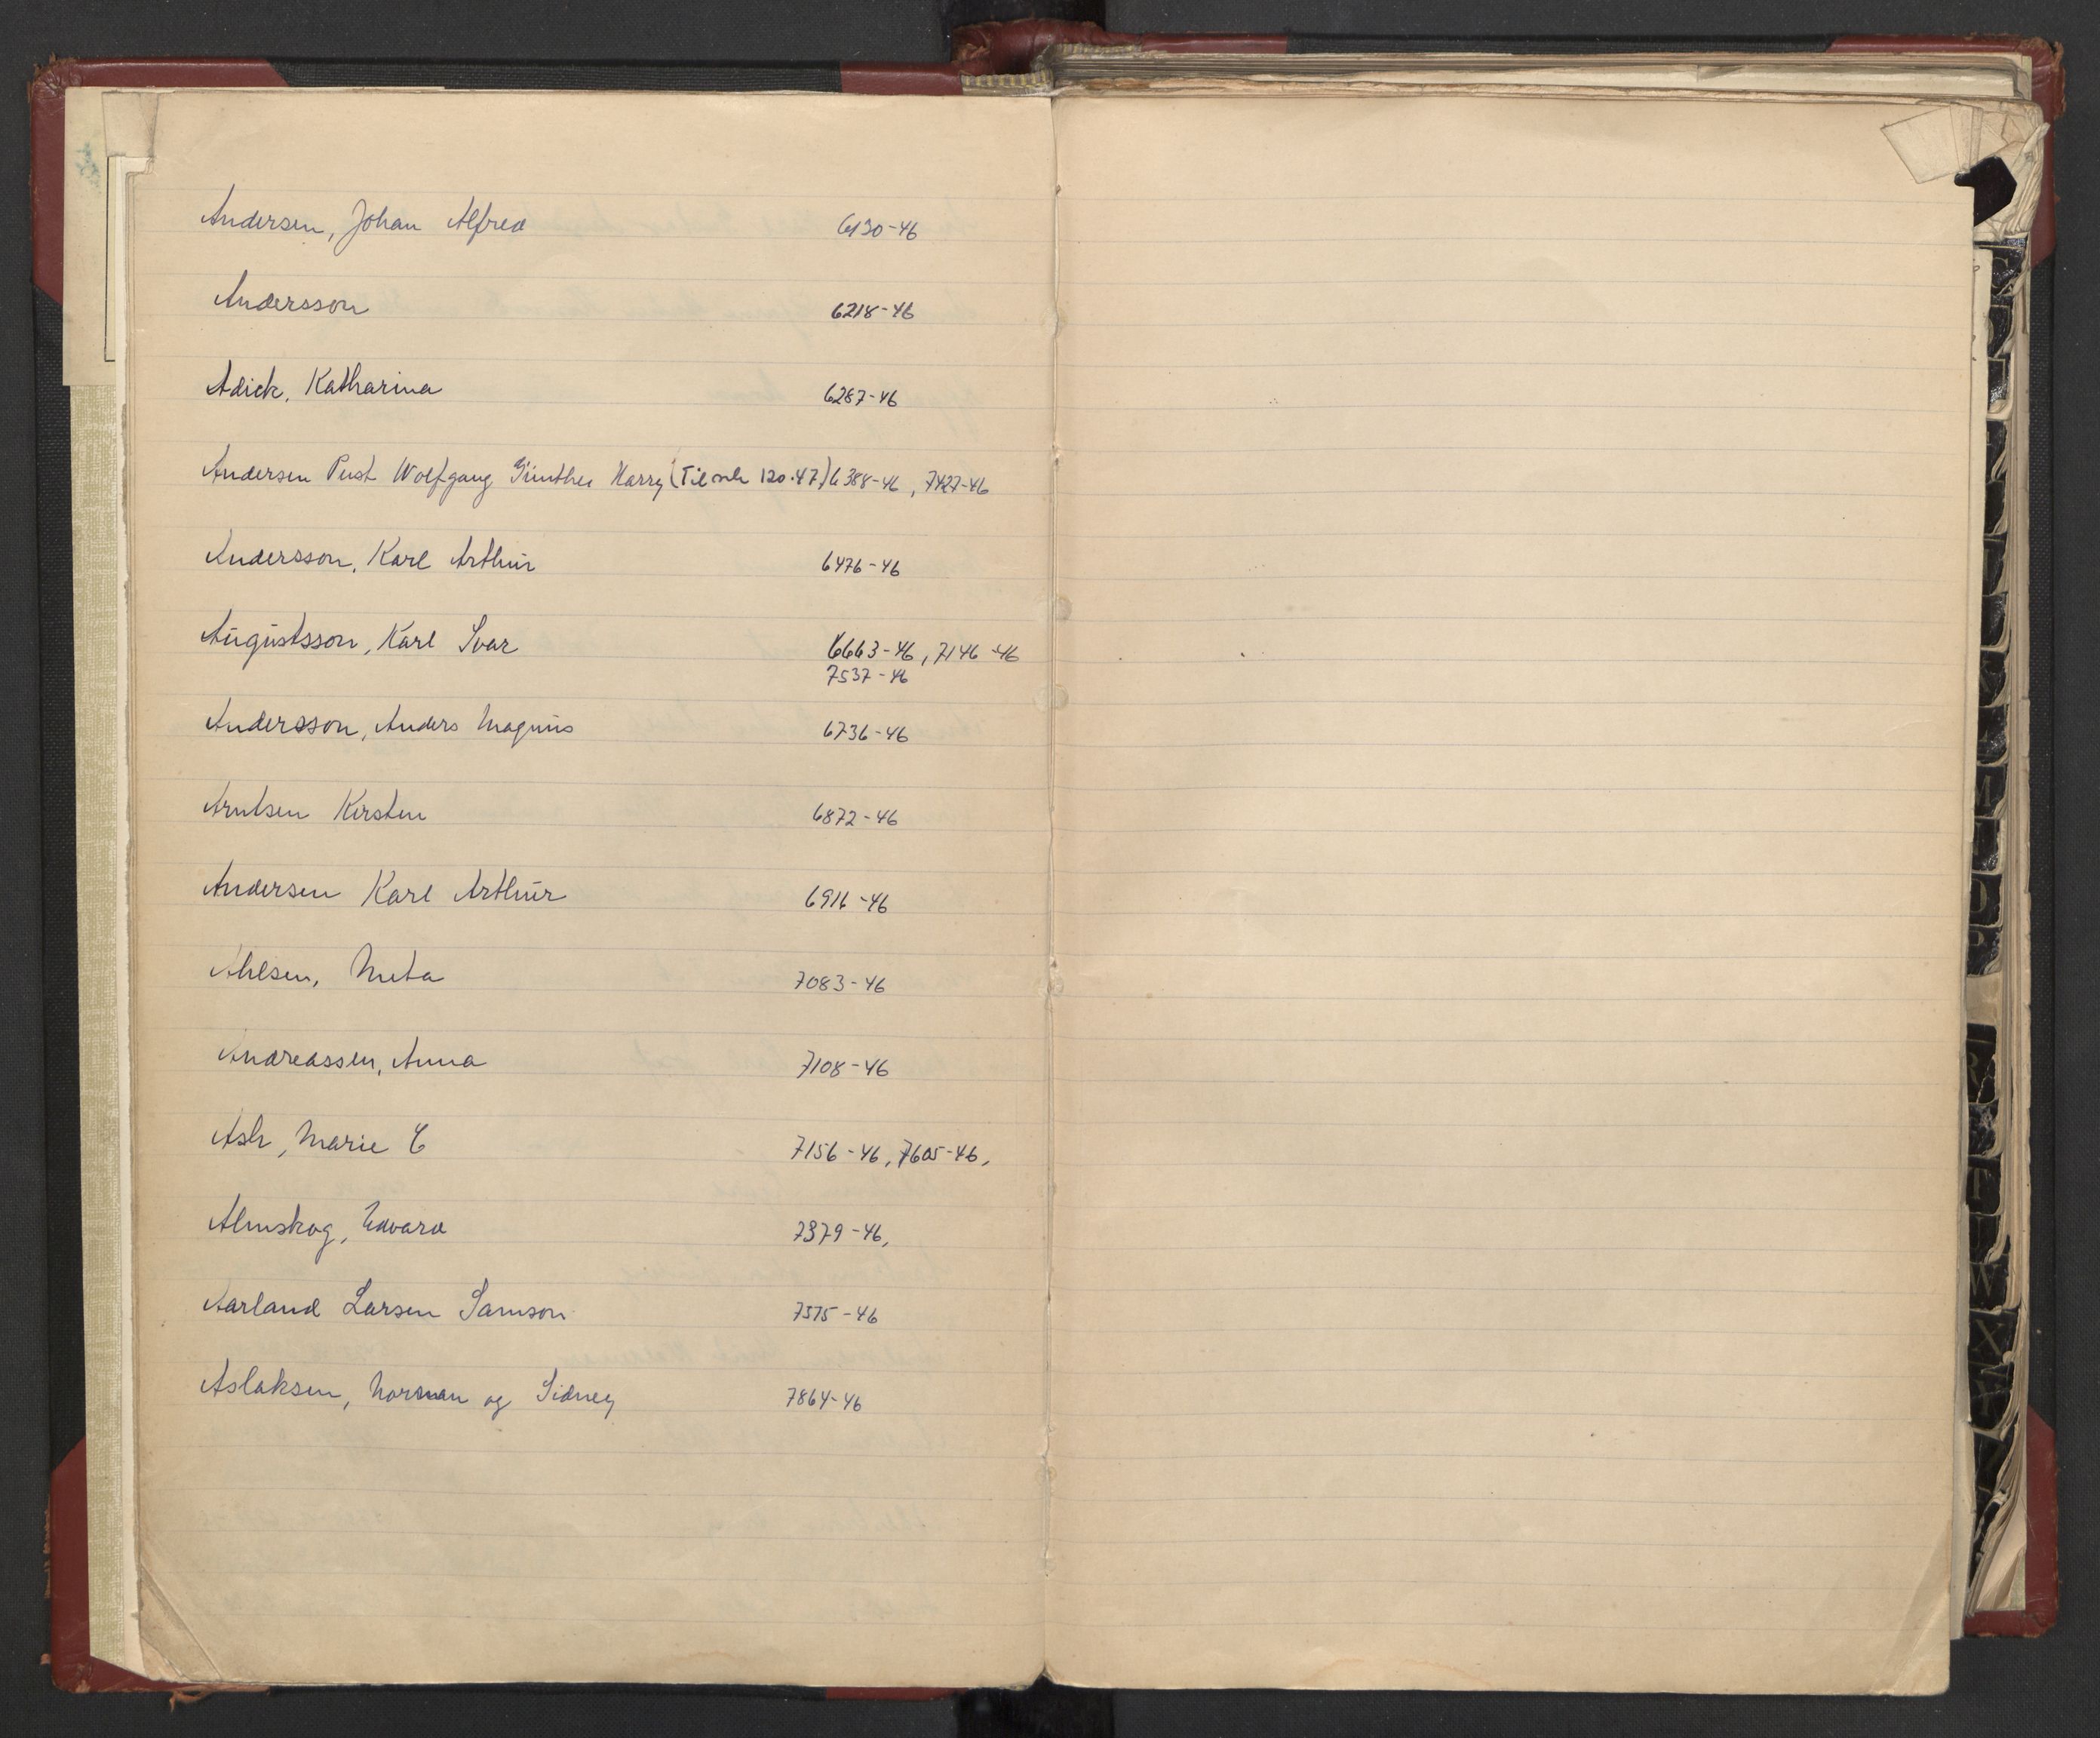 Andersen, Johan Alfred 6130-46
Andersson 6218-46
Adick, Katharina 6287-46
Andersen Pust Wolfgang Günther Harry (Til 120.47) 6388-46, 7427-46
Andersson, Karl Arthur 6476-46
Augustsson, Karl Ivar 6663-46, 7146-46
7537-46
Andersson, Anders Magnus 6736-46
Arntsen Kirsten 6872-46
Andersen Karl Arthur 6916-46
Ahlsen, Meta 7083-46
Andreassen, Anna 7108-46
Ash, Marie E 7156-46, 7605-46,
Almskog, Edvard 7379-46,
Aarland Larsen Samson 7575-46
Aslaksen, Norman og Sidney 7864-46
O
P
R
T
W
X